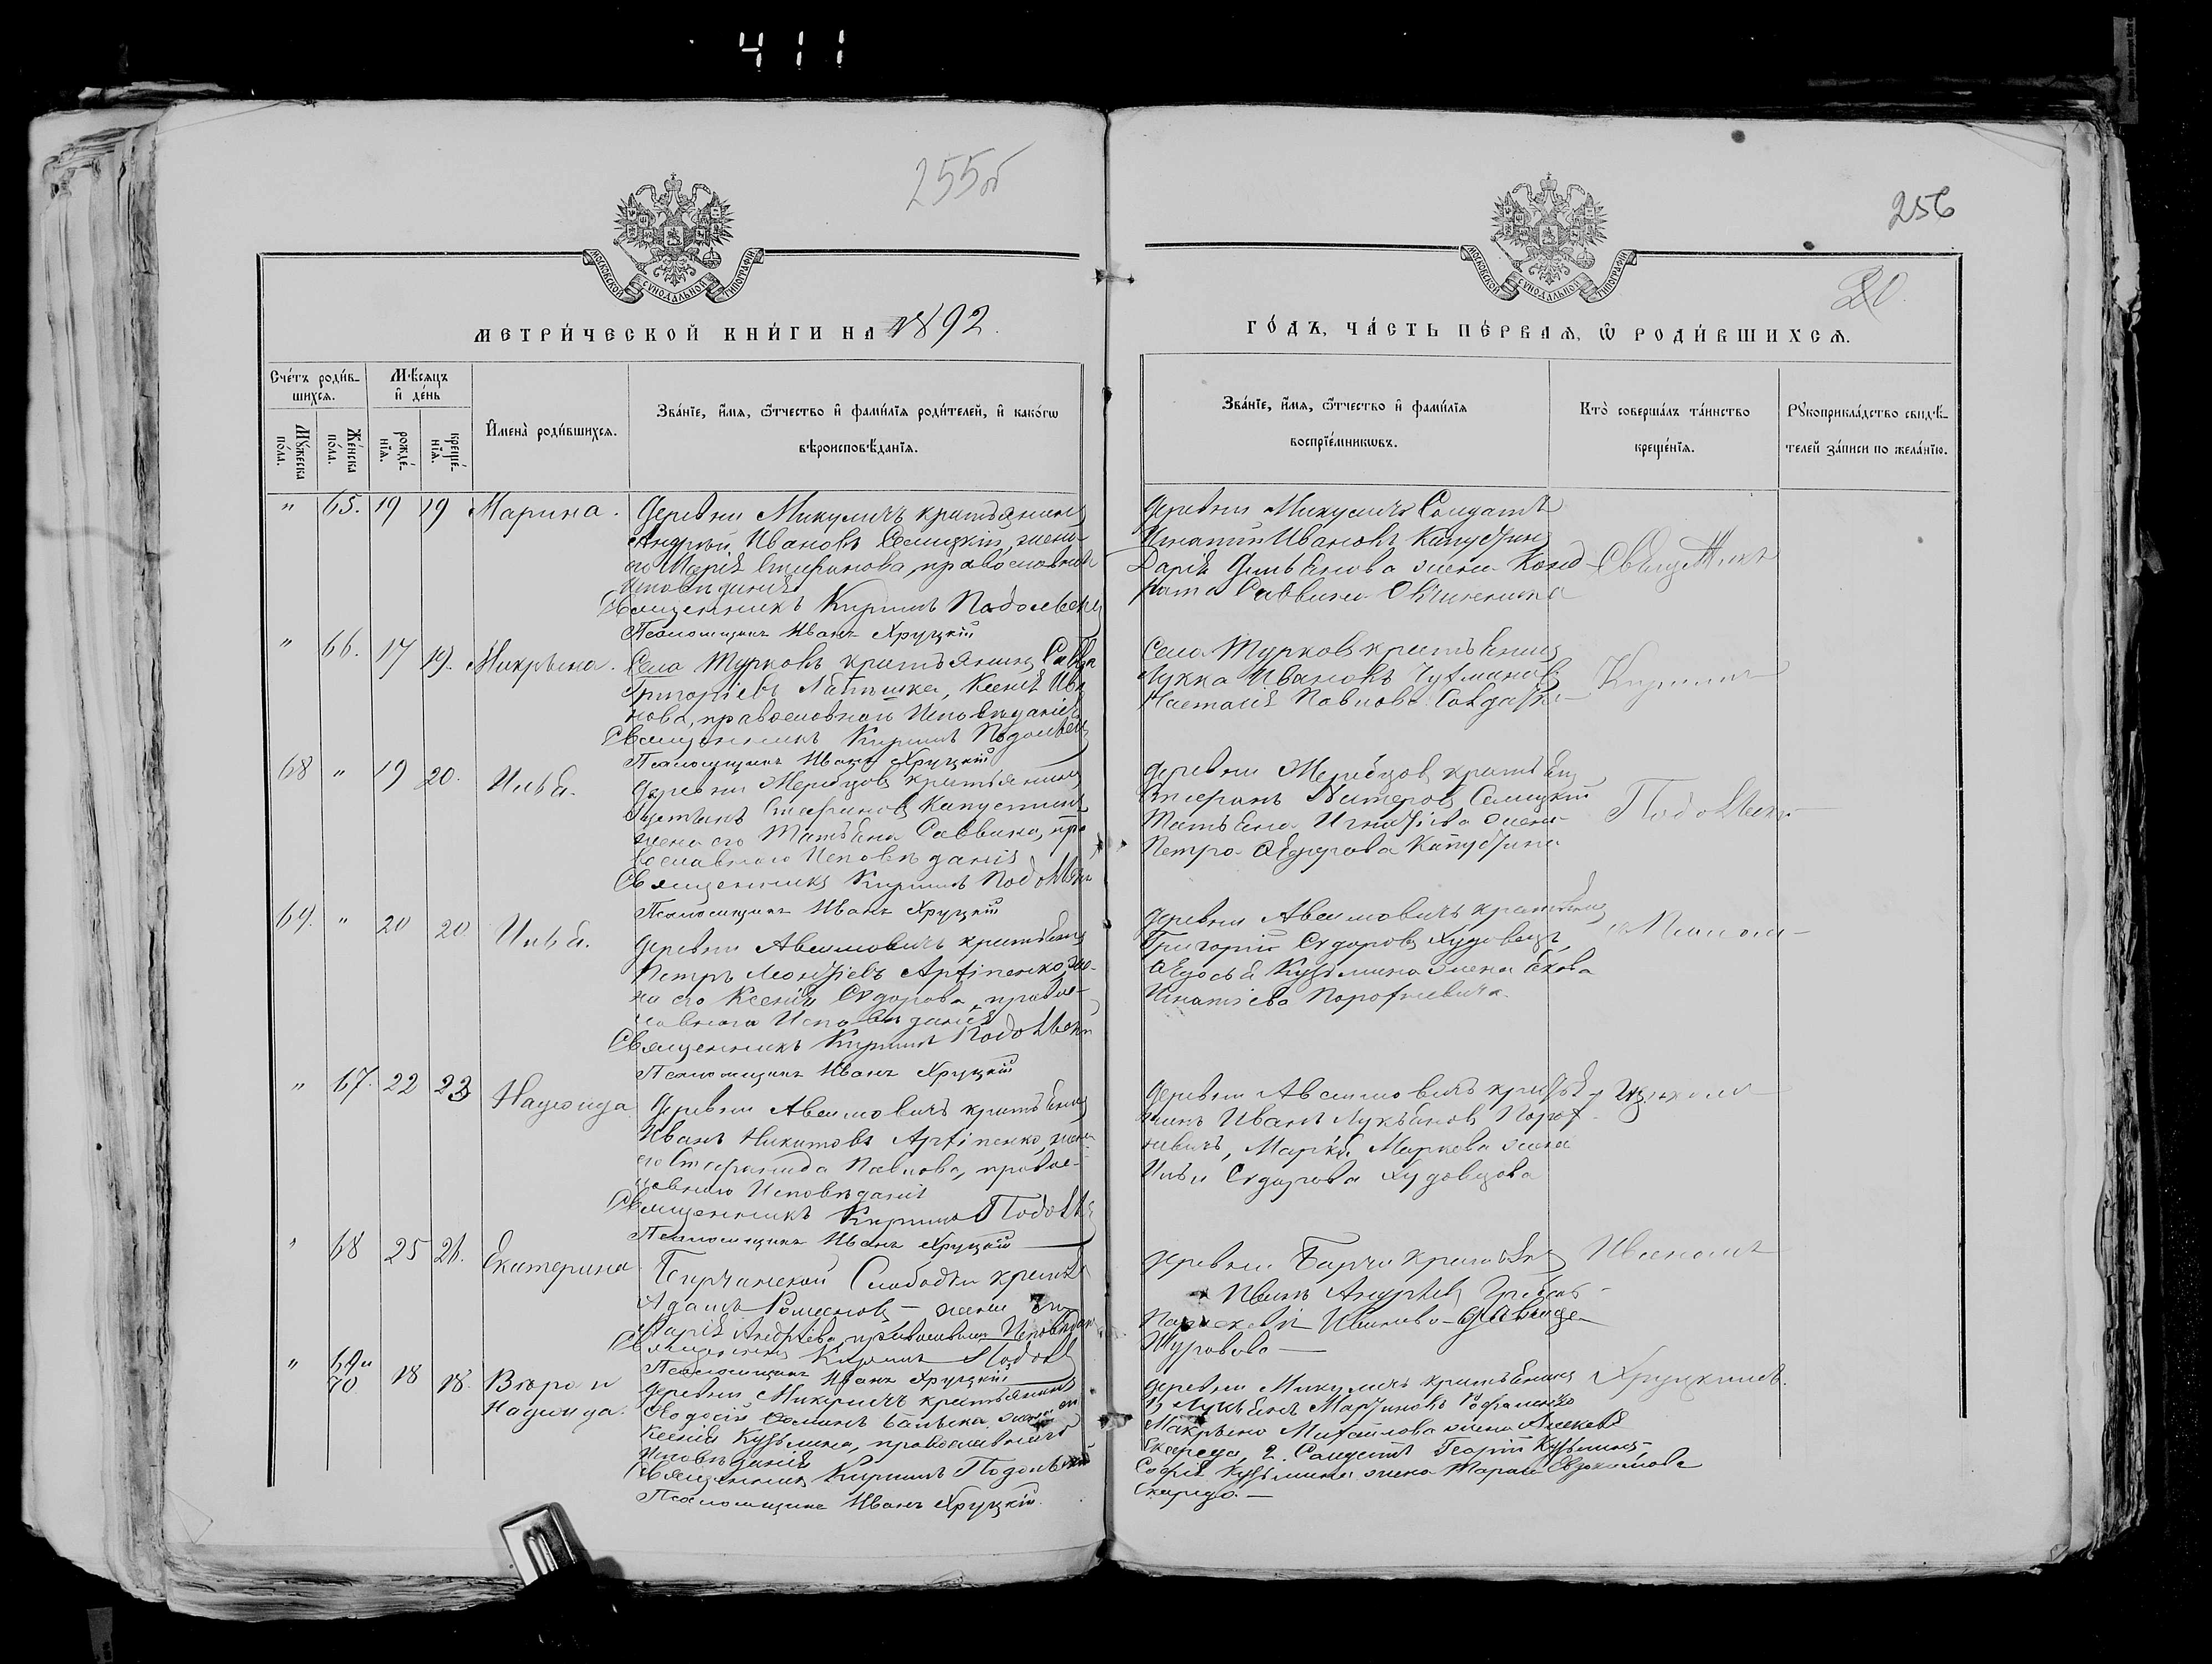 411
255об
256
20
МОСКОВСКОЙ СѴНОДАЛЬНОЙ ТИПОГРАФІИ
МОСКОВСКОЙ СѴНОДАЛЬНОЙ ТИПОГРАФІИ
МЕТРИ́ЧЕСКОЙ КНИ́ГИ НА 1892.
ГО́ДЪ, ЧА́СТЬ ПЕ́РВАѦ, Ѿ РОДИ́ВШИХСѦ.
Сче́тъ роди́в-
шихсѧ.
Мѣ́сѧцъ
и҆ де́нь
Мꙋ́жеска
по́ла.
Же́нска
по́ла.
рожде́-
нїѧ.
креще́-
нїѧ.
И҆мена̀ роди́вшихсѧ.
Зва́нїе, и҆́мѧ, ѻ҆́тчество и҆ фами́лїѧ роди́телей, и҆ како́гѡ
вѣроисповѣ́данїѧ.
Зва́нїе, и҆́мѧ, ѻ҆́тчество и҆ фами́лїѧ
воспрїе́мникѡвъ.
Кто̀ соверша́лъ та́инство
креще́нїѧ.
Рꙋкоприкла́дство свидѣ́-
телей за́писи по жела́нїю.
" 65. 19 19 Марина.
Деревни Микуличъ крестьянинъ
Андрей Ивановъ Селицкій, жена
его Марія Стефанова, православнаго
Исповѣданія
Священникъ Кириллъ Подольскій
Псаломщикъ Иванъ Хруцкій
Деревни Микуличъ Солдатъ
Игнатій Ивановъ Капустинъ
Дарія Демьянова жена Конд-
рата Саввина
Священникъ
" 66. 17 19. Макрина.
Села Турковъ крестьянинъ Савва
Григоріевъ Ксенія Ива
нова, православнаго Исповѣданія
Священникъ Кириллъ Подольскій
Псаломщикъ Иванъ Хруцкій
Села Турковъ крестьянинъ
Лукка Ивановъ
Настасія Павлова
Кириллъ
68 " 19 20. Илья.
Деревни крестьянинъ
Стефановъ Капустинъ
жена его Татьяна Саввина, пра
вославнаго Исповѣданія
Священникъ Кириллъ Подольскій
Псаломщикъ Иванъ Хруцкій
Деревни крестьян
Стефанъ Селицкій
Татьяна Игнатіева жена
Петра Ѳедорова Капустина
Подольскій
69. " 20 20 Илья.
Деревни Авсимовичъ крестьянинъ
Петръ Леонтіевъ Архипенко, же-
на его Ксенія Сидорова, правос-
лавнаго Исповѣданія
Священникъ Кириллъ Подольскій
Псаломщикъ Иванъ Хруцкій
Деревни Авсимовичъ крестьянинъ
Григорій Сидоровъ Худовецъ,
Ѳедосья Кузьмина жена
Игнатіева
съ Псалом-
" 67. 22 23 Надежда
Деревни Авсимовичъ крестьянинъ
Иванъ Никитовъ Архипенко, жена
его Стефанида Павлова, правос-
лавнаго Исповѣданія
Священникъ Кириллъ Подольскій
Псаломщикъ Иванъ Хруцкій
Деревни Авсимовичъ крестья-
нинъ Иванъ Лукьяновъ
Марія Маркова жена
Ильи Сидорова Худовцова
щикомъ
" 68 25 26. Екатерина
Барчанской Слободки крестья
Адамъ Романовъ - жена его
Марія Андреева, православнаго Исповѣдан
Священникъ Кириллъ Подольск
Псаломщикъ Иванъ Хруцкій
Деревни Барчи крестьян
Андреев
Параскевія Иванова
Журавова
Иваномъ
" 69 и
70 18 18. Вѣра и
Надежда.
Деревни Микуличъ крестьянинъ
Ѳодосій жена его
Ксенія Кузьмина, православнаго
Исповѣданія
Священникъ Кириллъ Подольскій
Псаломщикъ Иванъ Хруцкій.
Деревни Микуличъ крестьянинъ
1) Лукьянъ Мартиновъ
Макрина Михайлова жена Алексея
Скареда, 2. Солдатъ Георгій Кузьминъ
Софія Кузьмина жена Тараса Евдокимова
Скареда. —
Хруцкимъ.